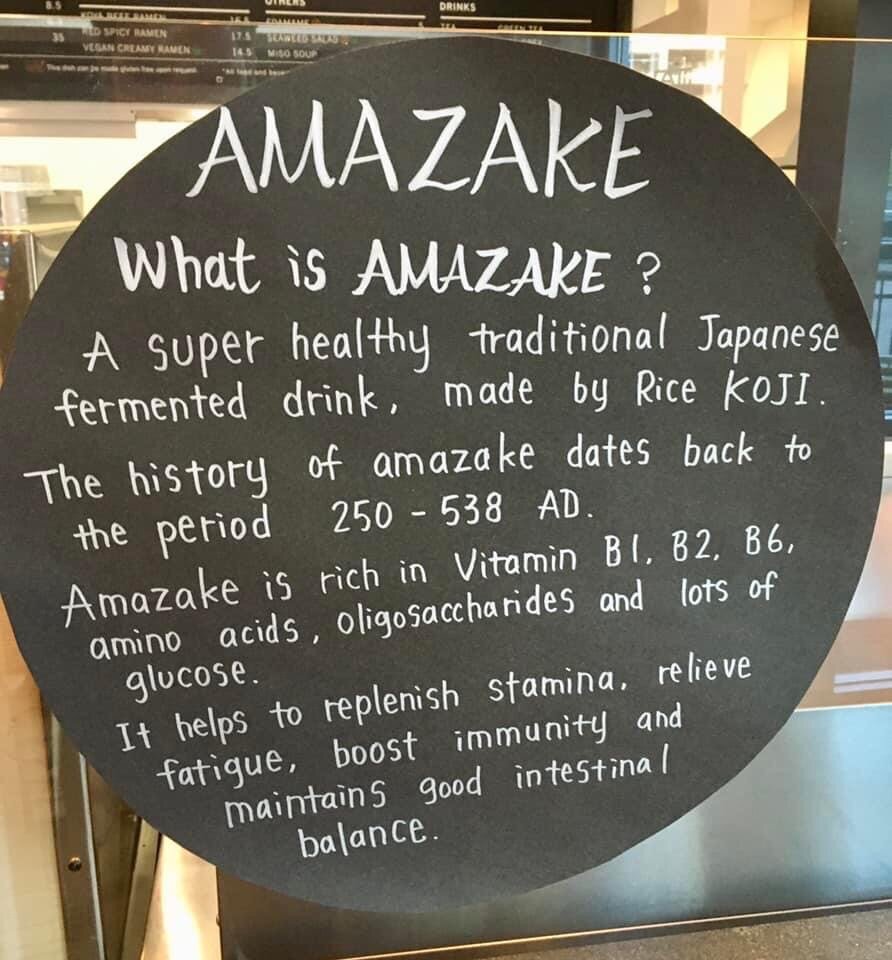 8.5
OTHERS
DRINKS
RED SPICY RAMEN 17.5
SEAWEED SALAD
35
VEGAN CREAMY RAMEN 14.5
MISO SOUP
This dish can be made gluten free upon request
AMAZAKE
What is AMAZAKE ?
A super healthy traditional Japanese
fermented drink, made by Rice KOJI.
The history of amazake dates back to
the period 250 - 538 AD.
Amazake is rich in Vitamin B1, B2, B6,
amino acids, oligosaccharides and lots of
glucose.
It helps to replenish stamina, relieve
fatigue, boost immunity and
maintains good intestinal
balance.